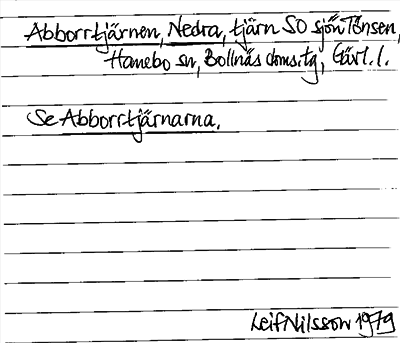 Abborrtjärnen, Nedra, tjärn SO sjön Tönsen,
Hanebo sn, Bollnäs doms.tg, Gävl. l.
Se Abborrtjärnarna.
Leif Nilsson 1979